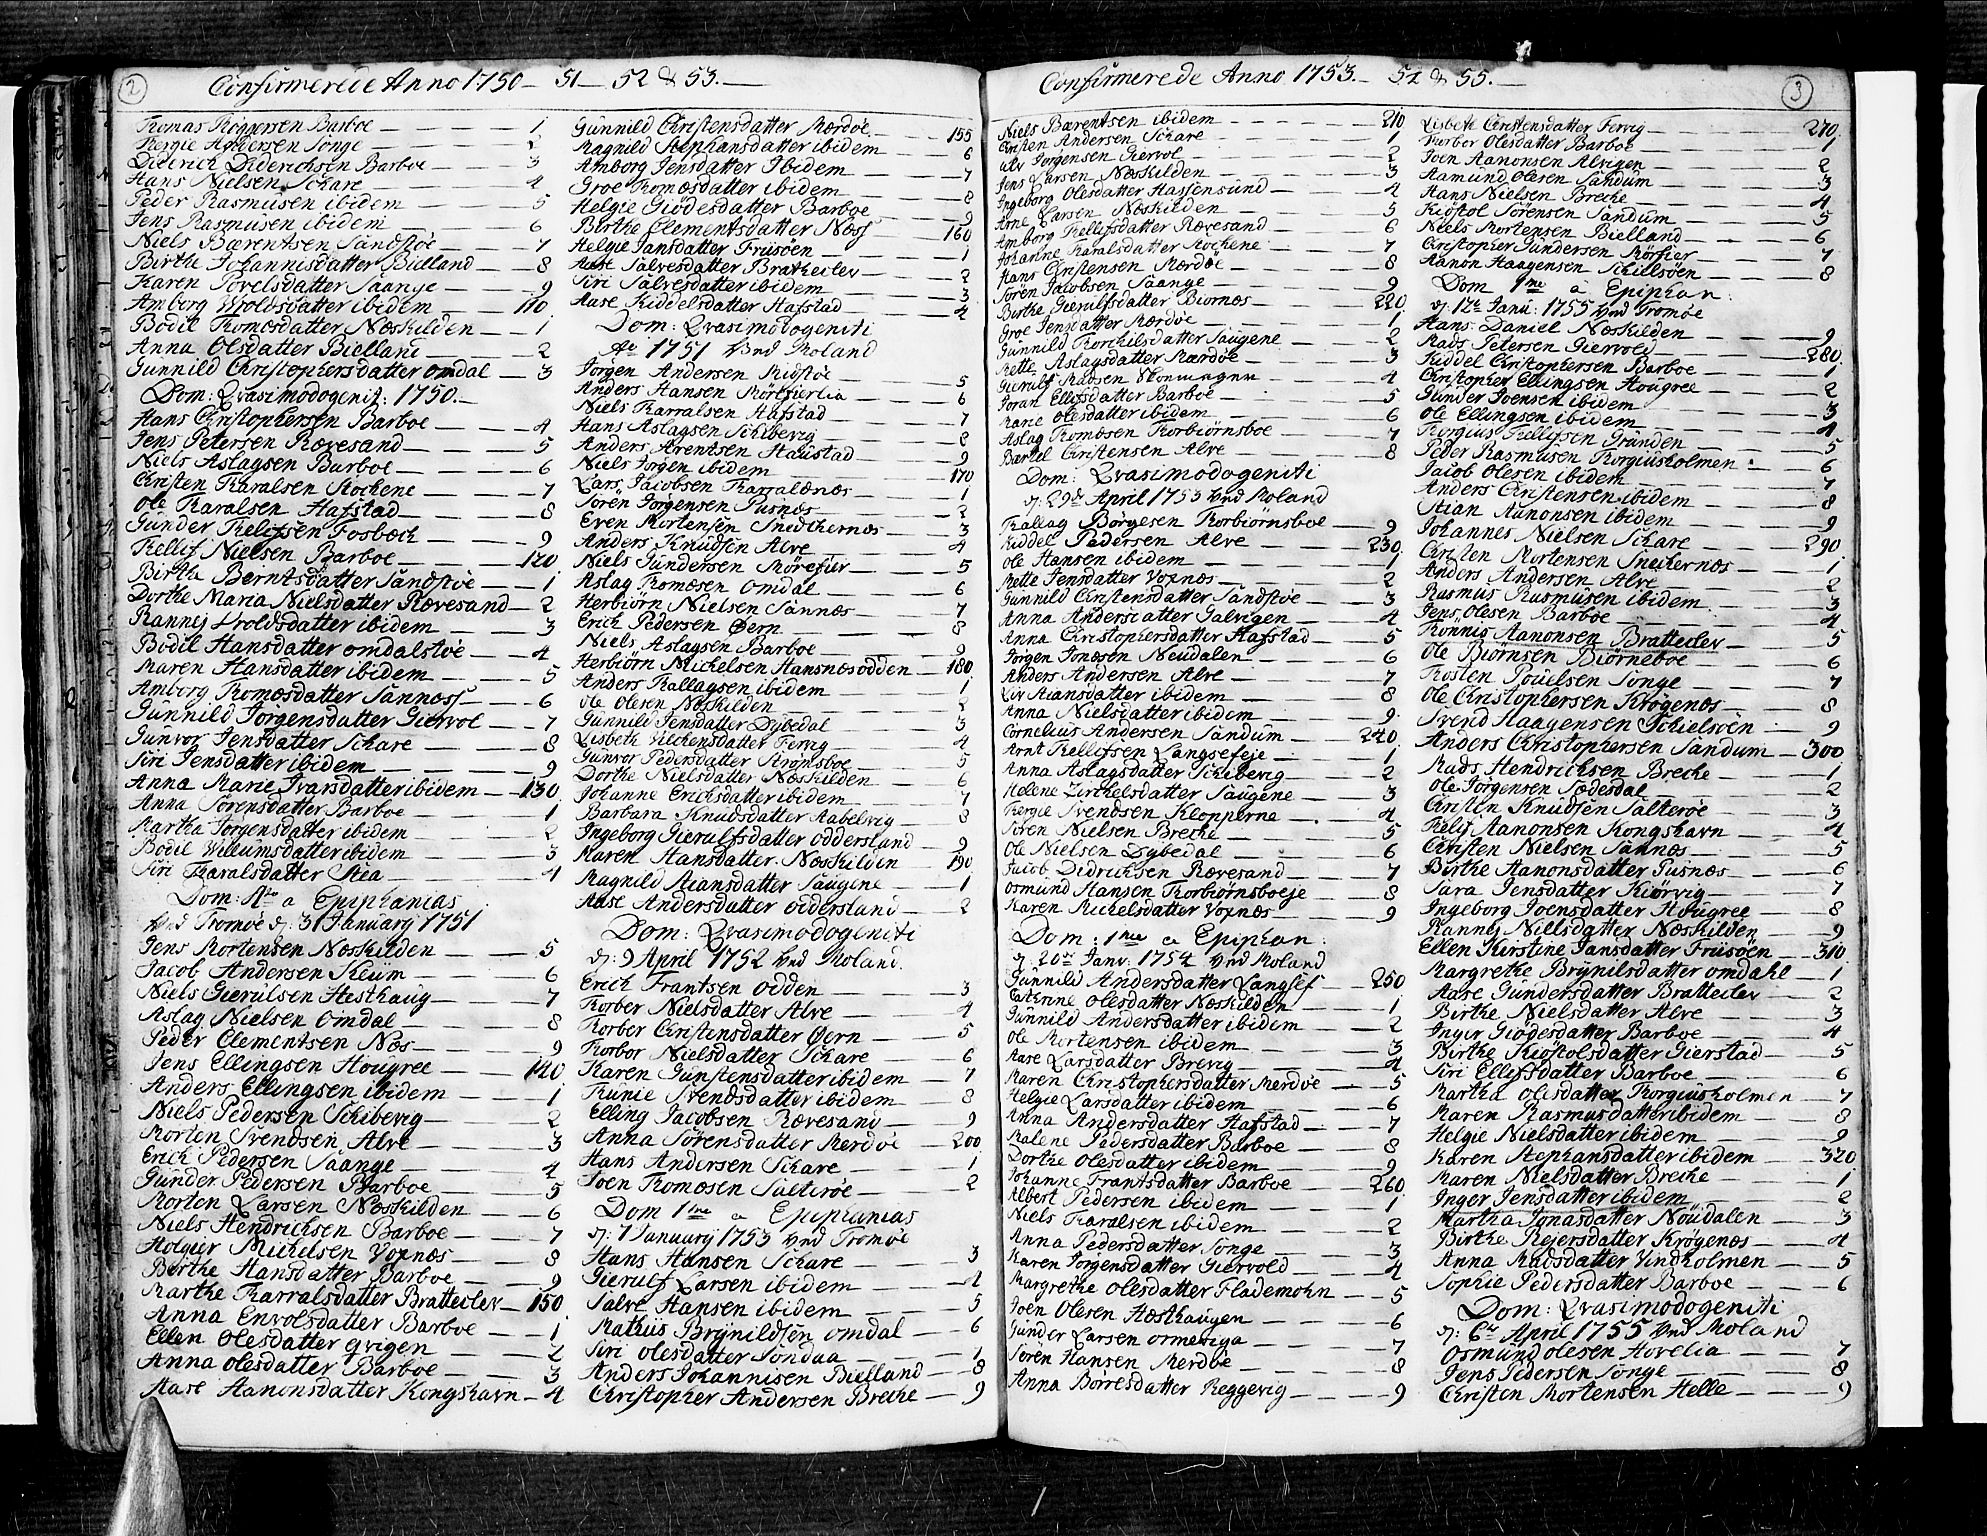 2
Confirmerede Anno 1750 - 51 - 52 & 53.
Tomas Roggersen Barboe 1
Tergie Andersen Songe 2
Diderich Diderichsen Barboe 3
Hans Nielsen Schare 4
Peder Rasmusen ibidem 5
Jens Rasmusen ibidem 6
Niels Bærentsen Sandstøe 7
Birthe Johannisdatter Bielland 8
Karen Tovelsdatter Saange 9
Amborg Wroldsdatter ibidem 110
Bodil Tomæsdatter Næskilden 1
Anna Olsdatter Bielland 2
Gunnild Christophersdatter omdal 3
Dom: Qvasimodogenit: 1750.
Hans Christophersen Barboe 4
Jens Petersen Rævesand 5
Niels Aslagsen Barboe 6
Christen Taralsen Stochene 7
Ole Taralsen Hafstad 8
Gunder Telefsen Fosbæch 9
Tellif Nielsen Barboe 120
Birthe Berntsdatter Sandstøe 1
Dorthe Maria Nielsdatter Rævesand 2
Rannej Wroldsdatter ibidem 3
Bodil Hansdatter omdalstøe 4
Maren Hansdatter ibidem 5
Amborg Tomæsdatter Sannæss 6
Gunnild Jorgensdatter Giervol 7
Gunvor Jensdatter Schare 8
Siri Jensdatter ibidem 9
Anna Marie Ivarsdatter ibidem 130
Anna Sørensdatter Barboe 1
Martha Jorgensdatter ibidem 2
Bodil Willumsdatter ibidem 3
Siri Taralsdatter Stea 4
Dom: 4te a Epiphanias
Vnd Tromøe d: 31 January 1751
Jens Mortensen Næskilden 5
Jacob Andersen Skium 6
Niels Gierulsen Hesthaug 7
Aslag Nielsen Omdal 8
Peder Clementsen Næs 9
Jens Ellingsen Hougree 140
Anders Ellingsen ibidem 1
Niels Pedersen Schibevig 2
Morten Svendsen Alve 3
Erich Pedersen Saange 4
Gunder Pedersen Barboe 5
Morten Larsen Næskilden 6
Niels Hendrichsen Barboe 7
Holgier Michelsen Voxnæs 8
Birthe Hansdatter Barboe 9
Marthe Tarralsdatter Bratteclev 150
Anna Envolsdatter Barboe 1
Ellen Olesdatter gvigen 2
Anna olesdatter Barboe 3
Aase Aanonsdatter Kongshavn 4
Gunnild Christensdatter Mærdøe 155
Magnild Stephansdatter ibidem 6
Amborg Jensdatter Ibidem 7
Groe Tomæsdatter ibidem 8
Helgie Giødesdatter Barboe 9
Birthe Clementsdatter Næss 160
Helgie Jansdatter Frusøen 1
Aase Salvesdatter Brathecлev 2
Siri Salvesdatter ibidem 3
Aase Kiddelsdatter Hafstad 4
Dom: Qvasimodogeniti
Ao 1751 Vnd Moland
Jorgen Andersen Midstøe 5
Anders Hansen Mørefierlia 6
Niels Tarralsen Hafstad 7
Hans Aslagsen Schibevig 8
Anders Arentsen Haustad 9
Niels Jorgen ibidem 170
Lars Jacobsen Tarralænæs 1
Søren Jorgensen Tusnæs 2
Even Mortensen Snedkernæs 3
Anders Knudsen Alve 4
Niels Gundersen Mørefier 5
Aslag Tomæsen Omdal 6
Herbiørn Nielsen Sannæs 7
Erich Pedersen Øern 8
Niels Aslagsen Barboe 9
Herbiørn Michelsen Hansnæsodden 180
Anders Tallagsen ibidem 1
Ole Olesen Næskilden 2
Gunnild Jensdatter Dybedal 3
Lisbeth Vilchensdatter Fervig 4
Gunvor Pedersdatter Stromsboe 5
Dorthe Nielsdatter Næskilden 6
Johanne Erichsdatter ibidem 7
Barbara Knudsdatter Kabelvig 8
Ingeborg Gierulfsdatter oddersland 9
Maren Hansdatter Næskilden 190
Magnild Stiansdatter Saugene 1
Aase Andersdatter oddersland 2
Dom: Qvasimodogeniti
d: 9 April 1752 Vnd Moland.
Erich Frantsen Odden 3
Torber Nielsdatter Alve 4
Torber Christensdatter Øern 5
Torbor Nielsdatter Schare 6
Karen Gunstensdatter ibidem 7
Tunie Svendsdatter ibidem 8
Elling Jacobsen Rævesand 9
Anna Sørensdatter Merdøe 200
Hans Andersen Schare 1
Joen Tomæsen Salterøe 2
Dom 1me a Epiphanias
d: 7 January 1753 Vnd Tromøe
Hans Hansen Schare 3
Gierulf Larsen ibidem 4
Salve Hansen ibidem 5
Mathis Brynildsen omdal 6
Siri Olesdatter Sondaa 7
Anders Johannisen Bielland 8
Christopher Andersen Breche 9
3
Confirmerede Anno 1753 - 54 & 55.
Niels Bærentsen ibidem 210
Christen Andersen Schare 1
Ulv Jorgensen Giervol 2
Jens Larsen Næskilden 3
Ingeborg Olesdatter Hassensund 4
Arne Larsen Næskilden 5
Amborg Tellefsdatter Rævesand 6
Johanne Taralsdatter Stochene 7
Hans Christensen Mærdøe 8
Søren Jacobsen Saange 9
Birthe Gierulfsdatter Biornæs 220
Groe Jensdatter Mærdøe 1
Gunnild Torchilsdatter Saugene 2
Mette Aslagsdatter Mærdøe 3
Gierulf Madsen 4
Joran Ellefsdatter Barboe 5
Marie Olesdatter ibidem 6
Aslag Tomæsen Torbiørnsboe 7
Bærtel Christensen Alve 8
Dom: Qvasimodogeniti
d: 29de April 1753 Vnd Moland
Tallag Børgesen Torbiørnsboe 9
Kiddel Pedersen Alve 230
Ole Hansen ibidem 1
Mette Jensdatter Voxnæs 2
Gunnild Christensdatter Sandstøe 3
Anna Andersdatter Galvigen 4
Anna Christophersdatter Hafstad 5
Jorgen Jonæsen Neudalen 6
Anders Andersen Alve 7
Liv Stiansdatter ibidem 8
Anna Nielsdatter ibidem 9
Cornelius Andersen Sandum 240
Arnt Tellefsen Langsefeje 1
Anna Aslagsdatter Schibevig 2
Helene Zirchelsdatter Saugene 3
Tergie Svendsen Klopperne 4
Soren Nielsen Breche 5
Ole Nielsen Dybedal 6
Jacob Didrichsen Rævesand 7
Osmund Hansen Torbiørnsboeje 8
Karen Michelsdatter Voxnæs 9
Dom: 1mee a Epiphan:
d: 20de Janv: 1754 Vnd Moland
Gunnild Andersdatter Langsef 250
Catrinne Olesdatter Næskilden 1
Gunnild Andersdatter ibidem 2
Ole Mortensen ibidem 3
Aase Larsdatter Brevig 4
Maren Christophersdatter Merdøe 5
Helgie Larsdatter ibidem 6
Anna Andersdatter Hafstad 7
Malene Pedersdatter Barboe 8
Dorthe Olesdatter ibidem 9
Johanne Frantsdatter Barboe 260
Albert Pedersen ibidem 1
Niels Taralsen ibidem 2
Anna Pedersdatter Songe 3
Karen Jorgensdatter Giervold 4
Margrethe Olesdatter Flademohn 5
Joen Olesen Hæsthaugen 6
Gunder Larsen ormeviga 7
Soren Hansen Merdøe 8
Anna Børresdatter Reggevig 9
Lisbeth Christensdatter Fervig 270
Tharbor Olesdatter Barboe 1
Joen Aanonsen Alvigen 2
Aamund Olesen Sandum 3
Hans Nielsen Breche 4
Kiøstol Sørensen Sandum 5
Niels Mortensen Bielland 6
Christopher Gundersen Mørfier 7
Aanon Haagensen Schillsøen 8
Dom 1me a Epiphan:
d: 12te Janu: 1755 Vnd Tromøe
Hans Daniel Næskilden 9
Mads Petersen Giervold 280
Kiddel Christophersen Barboe 1
Christopher Ellingsen Hougree 2
Gunder Joensen ibidem 3
Ole Ellingsen ibidem 4
Torgius Tellefsen Grunden
Peder Rasmusen Torgiusholmen 5
Jacob Olesen ibidem 6
Anders Christensen ibidem 7
Stian Aanonsen ibidem 8
Johannes Nielsen Schare 9
Christen Mortensen Snechernæs 290
Anders Andersen Alve 1
Rasmus Rasmusen ibidem 2
Jens Olesen Barboe 3
Tønnis Aanonsen Bratteclev 4
Ole Biørnsen Biørneboe 5
Tosten Touelsen Songe 6
Ole Christophersen Krøgenæs 7
Svend Haagensen Schielsøen 8
Anders Christophersen Sandum 300
Mads Hendrichsen Breche 1
Ole Jorgensen Sødesdal 2
Christen Knudsen Salterøe 3
Telif Aanonsen Kongshavn 4
Christen Nielsen Sannæs 5
Birthe Aanonsdatter Tusnæs 6
Sara Jensdatter Kiørvig 7
Ingeborg Joensdatter Hougree 8
Rannej Nielsdatter Næskilden 9
Ellen Kirstine Jansdatter Frusøen 310
Margrethe Brynilsdatter omdahl 1
Aase Gundersdatter Bratteclev 2
Birthe Nielsdatter Alve 3
Inger Giødesdatter Barboe 4
Birthe Kiøstolsdatter Gierstad 5
Siri Ellefsdatter Barboe 6
Martha Olesdatter Torgiusholmen 7
Maren Rasmusdatter ibidem 8
Helgie Nielsdatter ibidem 9
Karen Stephansdatter ibidem 320
Maren Nielsdatter Breche 1
Inger Jensdatter ibidem 2
Martha Jonasdatter Nøudalen 3
Birthe Rejersdatter Krøgenæs 4
Anna Madsdatter Vindholmen 5
Sophie Pedersdatter Barboe 6
Dom: Qvasimodogeniti
d: 6te April 1755 Vnd Moland
Osmund Olesen Hovelia 7
Jens Pedersen Songe 8
Christen Mortensen Helle 9